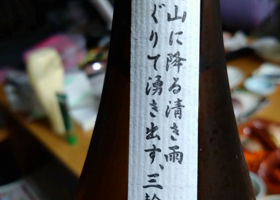 山に降る清き雨
ぐりて湧き出す、三輪